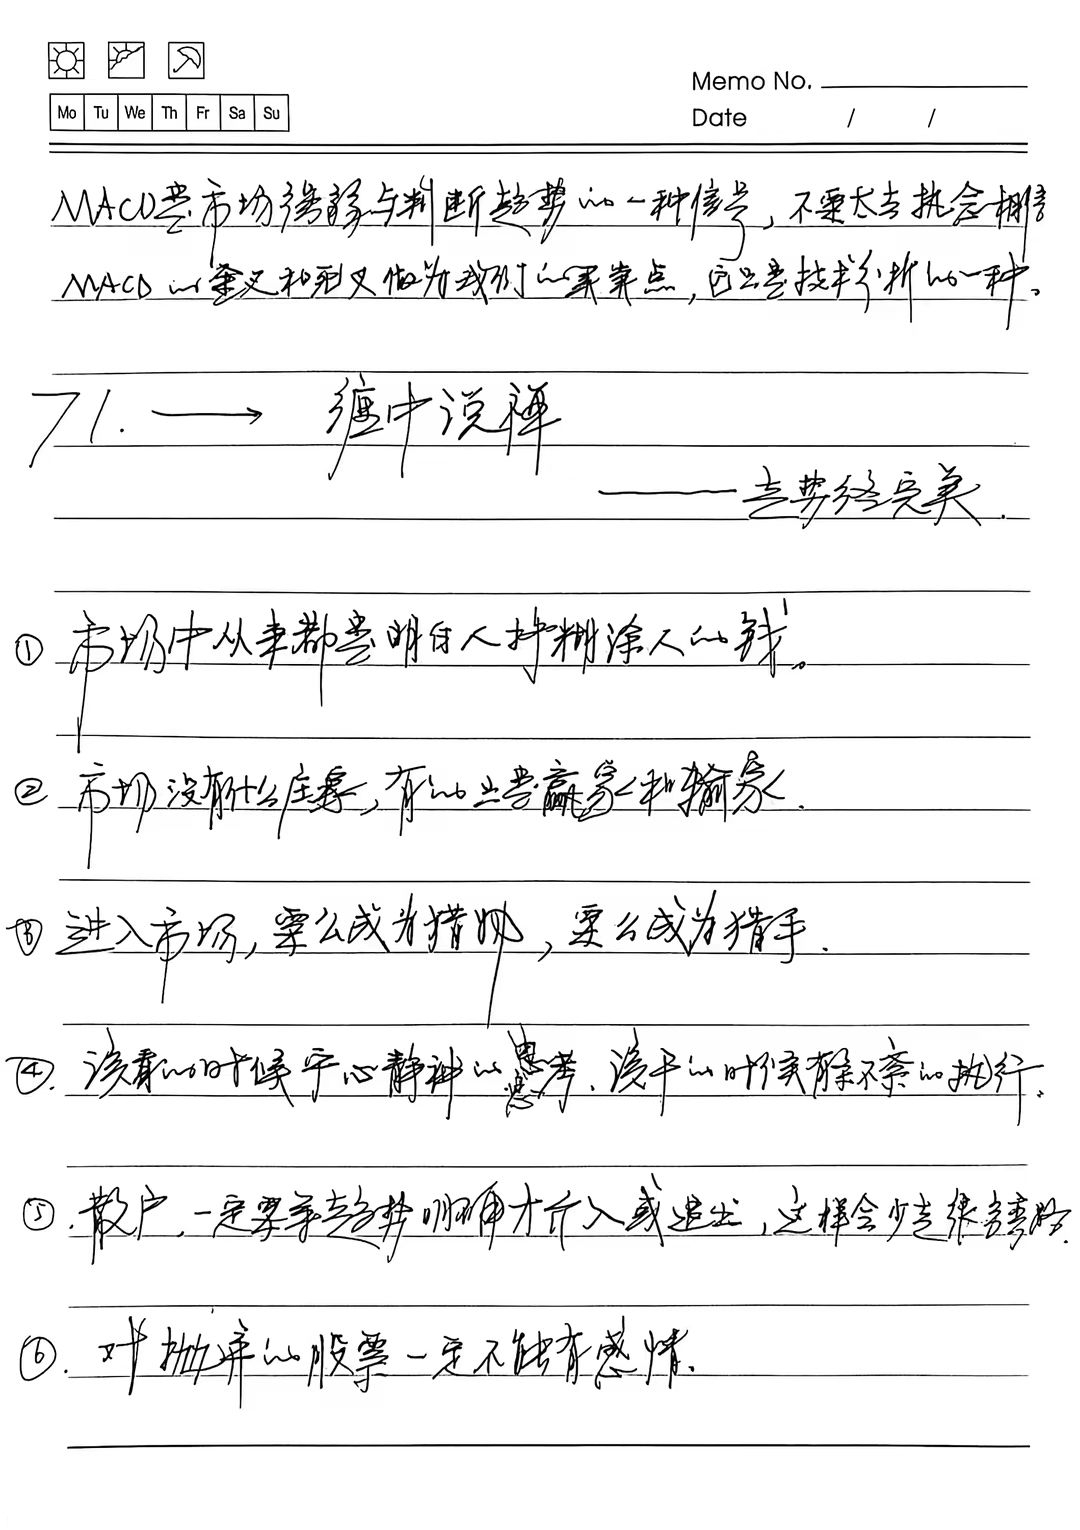 Memo No.
Mo Tu We Th Fr Sa Su
Date / /
MACD是市场强弱与判断趋势的一种信号，不要太去执念相信
MACD的金叉和死叉做为我们的买卖点，它只是技术分析的一种。
71. → 缠中说禅
——走势终完美.
① 市场中从来都是明白人挣糊涂人的钱。
② 市场没有什么庄家，有的只是赢家和输家.
③ 进入市场，要么成为猎物，要么成为猎手.
④. 该看的时候平心静神的思考.该干的时候有条不紊的执行.
⑤.散户.一定要等趋势明确才介入或退出，这样会少走很多弯路.
⑥. 对抛弃的股票一定不能有感情.